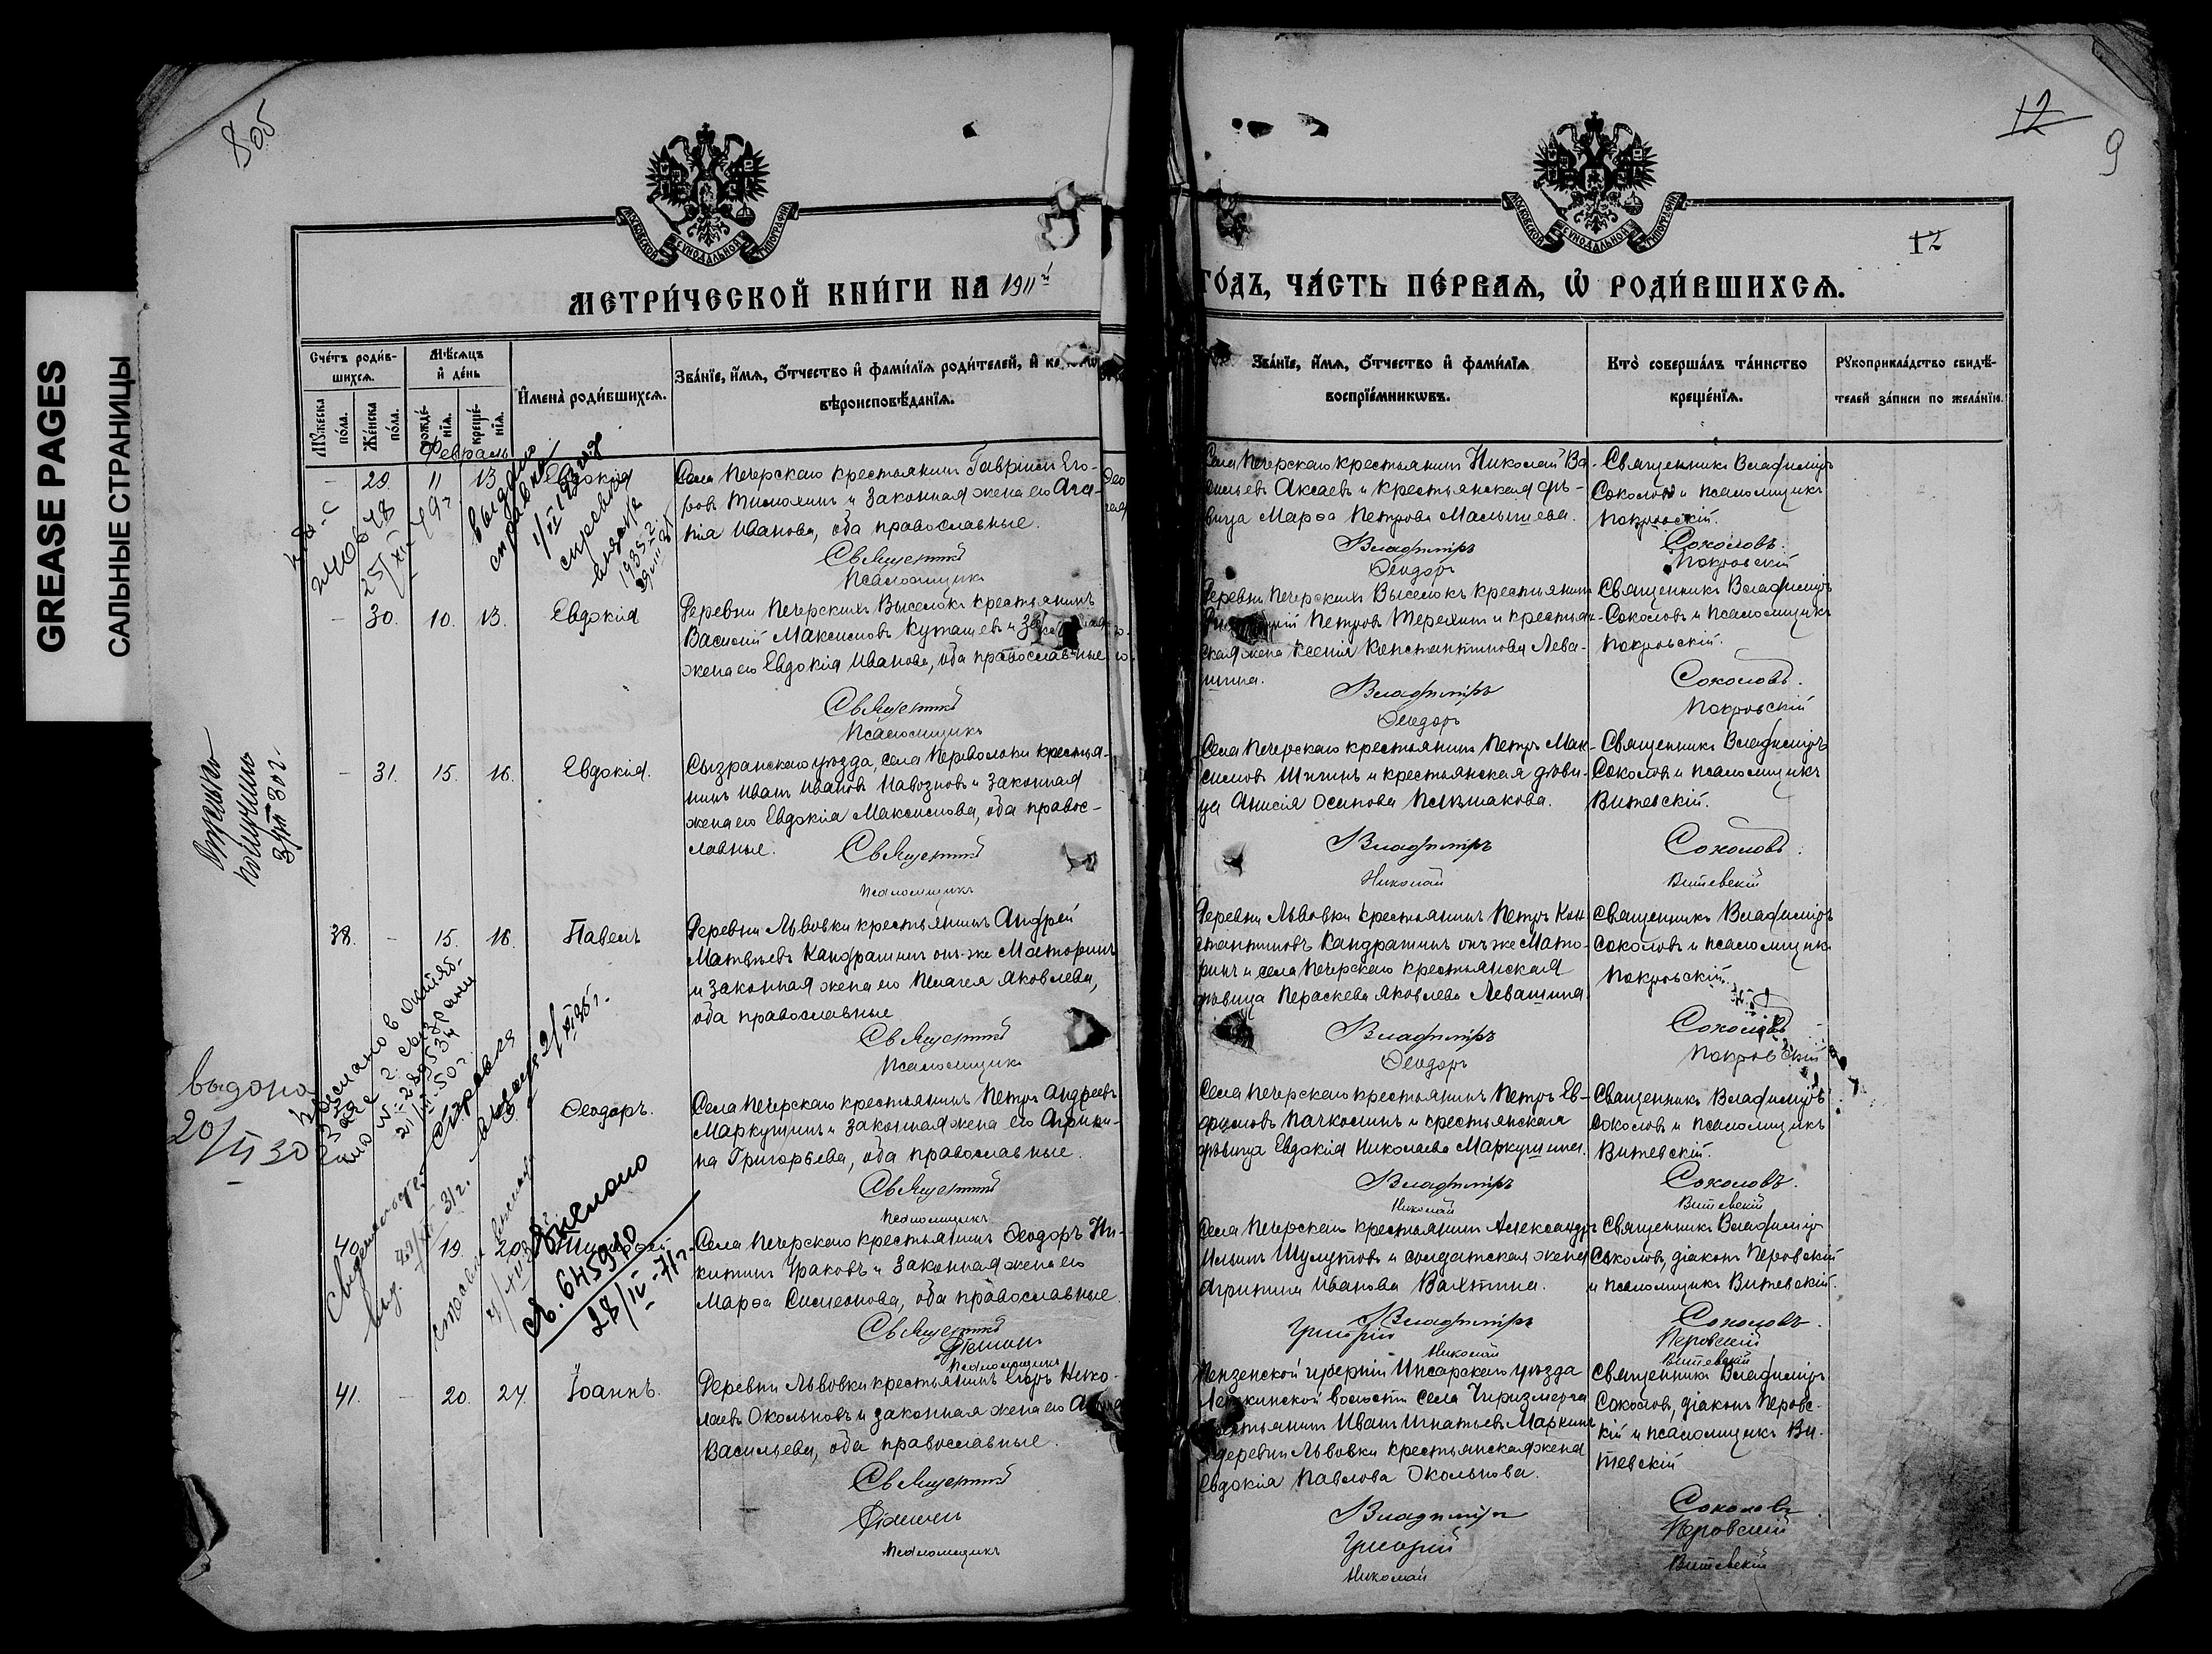 GREASE PAGES
САЛЬНЫЕ СТРАНИЦЫ
8 об
12
9
МОСКОВСКОЙ СѴНОДАЛЬНОЙ ТИПОГРАФІИ
МОСКОВСКОЙ СѴНОДАЛЬНОЙ ТИПОГРАФІИ
12
МЕТРИ́ЧЕСКОЙ КНИ́ГИ НА 1911й
ГО́ДЪ, ЧА́СТЬ ПЕ́РВАѦ, Ѡ РОДИ́ВШИХСѦ.
Сче́тъ роди́в-
шихсѧ.
Мѹжеска по́ла.
Же́нска по́ла.
Мѣ́сѧцъ
и де́нь
рожде́-
нїѧ.
креще́-
нїѧ.
Имена̀ роди́вшихсѧ.
Зва́нїе, и́мѧ, о́тчество и фами́лїѧ роди́телей, и
вѣроисповѣ́данїѧ.
Зва́нїе, и́мѧ, о́тчество и фами́лїѧ
воспрїе́мникωвъ.
Кто̀ соверша́лъ та́инство
креще́нїѧ.
Рѹкоприкла́дство свидѣ́-
телей за́писи по жела́нїю.
Февраль
- 29. 11 13 Евдокія
Села Печерскаго крестьянинъ Гавріилъ Его-
ровъ Тимохинъ и законная жена его Ага-
пія Иванова, оба православные.
Священникъ
Псаломщикъ
Села Печерскаго крестьянинъ Николай Ва-
сильевъ Аксаевъ и крестьянская дѣ-
вица Марѳа Петрова Малышева.
Владиміръ
Ѳеодоръ
Священникъ Владиміръ
Соколовъ и псаломщикъ
Покровскій.
Соколовъ.
Покровскій
240678
25/XII 49г
выдана
справка
- 30. 10. 13. Евдокія
Деревни Печерскихъ Выселокъ крестьянинъ
Василій Максимовъ Куташевъ и
жена его Евдокія Иванова, оба православные
Священникъ
Псаломщикъ
Деревни Печерскихъ Выселокъ крестьянинъ
Петровъ Терехинъ и крестьян-
ская жена Ксенія Константинова Лева-
шина.
Владиміръ
Ѳеодоръ
Священникъ Владиміръ
Соколовъ и псаломщикъ
Покровскій.
Соколовъ.
Покровскій
- 31. 15. 16. Евдокія.
Сызранскаго уѣзда, села Переволоки крестья-
нинъ Иванъ Ивановъ Навозновъ и законная
жена его Евдокія Максимова, оба правос-
лавные.
Священникъ
Псаломщикъ
Села Печерскаго крестьянинъ Петръ Мак-
симовъ Шигинъ и крестьянская дѣви-
ца Анисія Осипова
Владиміръ
Николай
Священникъ Владиміръ
Соколовъ и псаломщикъ
Витевскій.
Соколовъ.
Витевскій
получила
38. - 15. 16. Павелъ
Деревни Львовки крестьянинъ Андрей
Матвѣевъ Кандрашинъ онъ-же Маторинъ
и законная жена его Пелагея Яковлева,
оба православные
Священникъ
Псаломщикъ
Деревни Львовки крестьянинъ Петръ Кон-
стантиновъ Кандрашинъ онъ же Мато-
ринъ и села Печерскаго крестьянская
дѣвица Параскева Яковлева Левашина.
Владиміръ
Ѳеодоръ
Священникъ Владиміръ
Соколовъ и псаломщикъ
Покровскій.
Соколовъ
Покровскій
выдана
20/II 30
Ѳеодоръ.
Села Печерскаго крестьянинъ Петръ Андреевъ
Маркушинъ и законная жена его Агрипи-
на Григорьева, оба православные.
Священникъ
Псаломщикъ
Села Печерскаго крестьянинъ Петръ Ев-
фимовъ Пачколинъ и крестьянская
дѣвица Евдокія Николаева Маркушина.
Владиміръ
Николай
Священникъ Владиміръ
Соколовъ и псаломщикъ
Витевскій.
Соколовъ.
Витевскій
40 19. 20.
Села Печерскаго крестьянинъ Ѳеодоръ Ни-
китинъ Ураковъ и законная жена его
Марѳа Симеонова, оба православные.
Священникъ
Діаконъ
Псаломщикъ
Села Печерскаго крестьянинъ Александръ
Ильинъ Шулутовъ и солдатская жена
Агрипина Иванова Вахтина.
Владиміръ
Григорій
Николай
Священникъ Владиміръ
Соколовъ, діаконъ Перовскій
и псаломщикъ Витевскій.
Соколовъ.
Перовскій
Витевскій
645940
28/IV-71г.
41. - 20. 27. Іоаннъ.
Деревни Львовки крестьянинъ Егоръ Нико-
лаевъ Окольновъ и законная жена его
Васильева, оба православные.
Священникъ
Діаконъ
Псаломщикъ
Пензенской губерніи Инсарскаго уѣзда
волости села
Иванъ Игнатьевъ Маркинъ
деревни Львовки крестьянская жена
Евдокія Павлова Окольнова.
Владиміръ
Григорій
Николай
Священникъ Владиміръ
Соколовъ, діаконъ Перовс-
кій и псаломщикъ Ви-
тевскій
Соколовъ
Перовскій
Витевскій